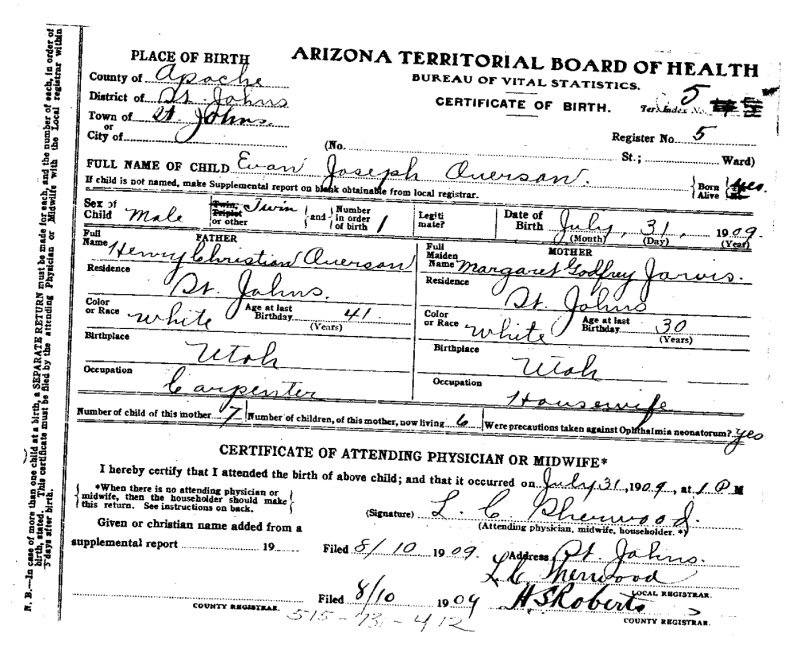 PLACE OF BIRTH
ARIZONA TERRITORIAL BOARD OF HEALTH
BUREAU OF VITAL STATISTICS.
CERTIFICATE OF BIRTH.
County of Apache
District of St. Johns
Town of St. Johns.
or
City of
Ter. Index No. 5
Register No. 5
(No. St.; Ward)
FULL NAME OF CHILD Evan Joseph Overson.
If child is not named, make Supplemental report on blank obtainable from local registrar.
Born Alive Yes.
Sex of Child Male
Twin, Triplet or other Twin
and Number in order of birth 1
Legitimate?
Date of Birth July, 31, 1909.
(Month) (Day) (Year)
FATHER
Full Name Henry Christian Overson
Residence
St. Johns.
Color or Race White
Age at last Birthday 41
(Years)
Birthplace
Utah
Occupation
Carpenter
MOTHER
Full Maiden Name Margaret Godfrey Jarvis.
Residence
St. Johns
Color or Race White
Age at last Birthday 30
(Years)
Birthplace
Utah
Occupation
Housewife
Number of child of this mother 7 Number of children, of this mother, now living 6 Were precautions taken against Ophthalmia neonatorum? Yes
CERTIFICATE OF ATTENDING PHYSICIAN OR MIDWIFE*
I hereby certify that I attended the birth of above child; and that it occurred on July 31, 1909, at 1 P M
*When there is no attending physician or midwife, then the householder should make this return. See instructions on back.
(Signature) L. C. Sherwood.
(Attending physician, midwife, householder. *)
Given or christian name added from a
supplemental report 19
Filed 8/10 1909. Address St. Johns.
L C Sherwood
LOCAL REGISTRAR.
Filed 8/10 1909 H S Roberts
COUNTY REGISTRAR.
COUNTY REGISTRAR.
515-731-412
N. B.—In case of more than one child at a birth, a SEPARATE RETURN must be made for each, and the number of each, in order of
birth, stated. This certificate must be filed by the attending Physician or Midwife with the Local registrar within
days after birth.